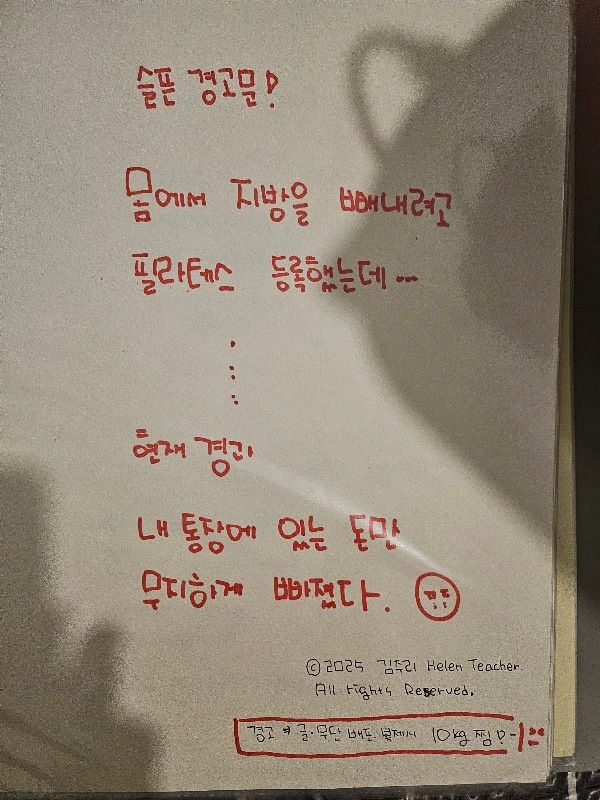 슬픈 경고문!
몸에서 지방을 빼내려고
필라테스 등록했는데...
현재 경과
내 통장에 있는 돈만
무지하게 빠졌다.
©2025 김주리 Helen Teacher.
All rights Reserved.
경고 글·무단 배포·복제시 10kg 찜!